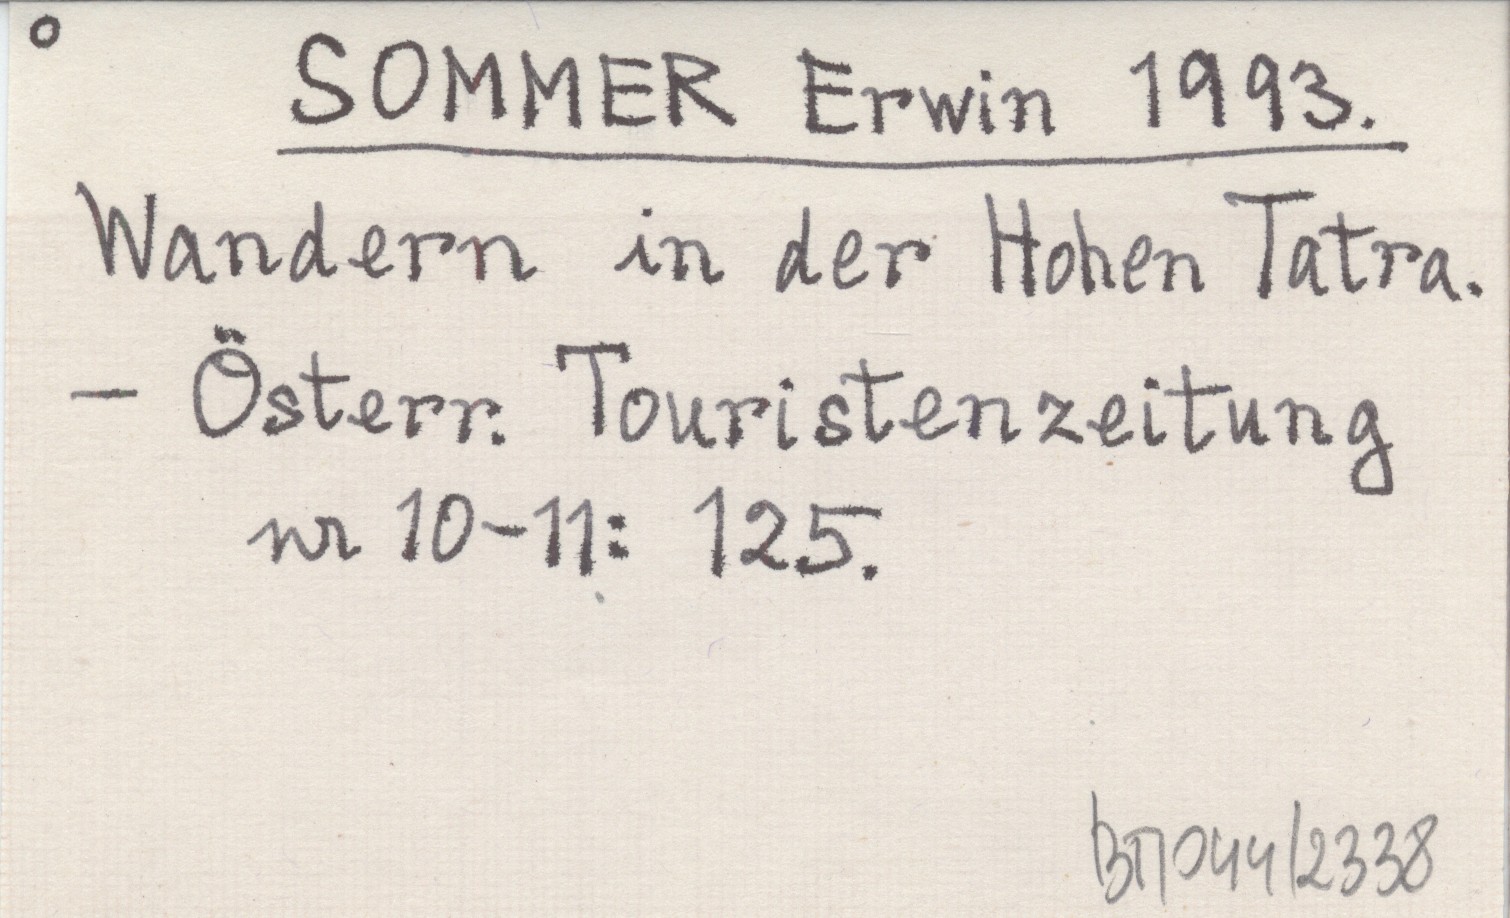 SOMMER Erwin 1993.
Wandern in der Hohen Tatra.
– Österr. Touristenzeitung
nr 10–11: 125.